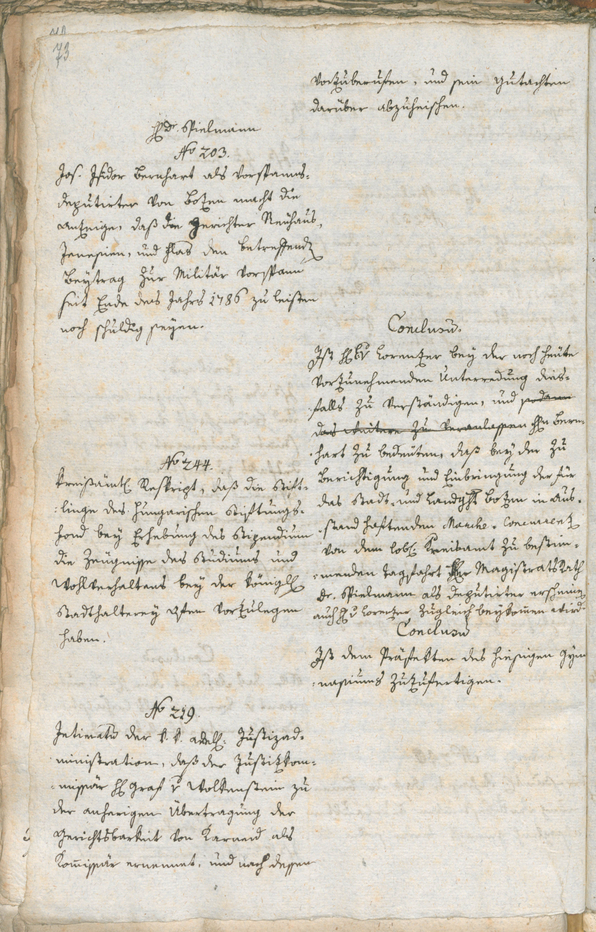 73
vorzuberufen, und sein Gutachten
darüber abzuheischen.
H. Dr. Spielmann
No 203.
Jos. Isidor Bernhart als Vorspanns-
deputirter von Bozen macht die
Anzeige, daß die Gerichter Neuhaus,
Jenesien, und Flas den betreffenden
Beytrag zur Militär Vorspann
seit Ende des Jahrs 1786 zu leisten
noch schuldig seyen.
Conclusum.
Ist H. Lorenzer bey der noch heute
vorzunehmenden Unterredung dies-
falls zu verständigen, und sodann
das weitere zu veranlassen H. Bern-
hart zu bedeuten, daß bey der zu
Berichtigung und Einbringung der für
das Stadt- und Landgericht Bozen in Aus-
stand haftenden Marche-Concurrenz
von dem löbl. Kreisamt zu bestim-
menden Tagfahrt Herr Magistratsrath
Dr. Spielmann als Deputirter erscheine
auch H. Lorenzer zugleich beykommen wird.
No 244.
Kreisämtl. Reskript, daß die Stift-
linge des Hungarischen Stiftungs-
fond bey Erhebung des Stipendium
die Zeugnisse des Studiums und
Wohlverhaltens bey der königl.
Stadthalterey Ofen vorzulegen
haben.
Conclusum
Ist dem Präfekten des hiesigen Gym-
nasiums zuzufertigen.
No 219.
Intimatum der k. k. adel. Justizad-
ministration, daß der Justizkom-
missär H. Graf v. Wolkenstein zu
der anherigen Übertragung der
Gerichtsbarkeit von Karneid als
Kommissär ernennet, und nach dessen